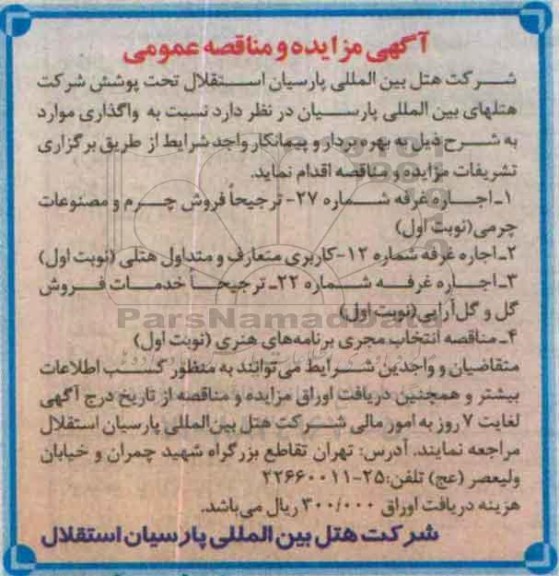 آگهی مزایده و مناقصه عمومی
شرکت هتل بین المللی پارسیان استقلال تحت پوشش شرکت
هتلهای بین المللی پارسیان در نظر دارد نسبت به واگذاری موارد
به شرح ذیل به بهره بردار و پیمانکار واجد شرایط از طریق برگزاری
تشریفات مزایده و مناقصه اقدام نماید.
۱ـ اجاره غرفه شماره ۲۷- ترجیحاً فروش چرم و مصنوعات
چرمی(نوبت اول)
۲ـ اجاره غرفه شماره ۱۲-کاربری متعارف و متداول هتلی (نوبت اول)
۳ـ اجاره غرفه شماره ۲۲ـ ترجیحاً خدمات فروش
گل و گل‌آرایی(نوبت اول)
ParsNamadData
۴ـ مناقصه انتخاب مجری برنامه‌های هنری (نوبت اول)
متقاضیان و واجدین شرایط می‌توانند به منظور کسب اطلاعات
بیشتر و همچنین دریافت اوراق مزایده و مناقصه از تاریخ درج آگهی
لغایت ۷ روز به امور مالی شرکت هتل بین‌المللی پارسیان استقلال
مراجعه نمایند. آدرس: تهران تقاطع بزرگراه شهید چمران و خیابان
ولیعصر (عج) تلفن:۲۵-۲۲۶۶۰۰۱۱
هزینه دریافت اوراق ۳۰۰/۰۰۰ ریال می‌باشد.
شرکت هتل بین المللی پارسیان استقلال